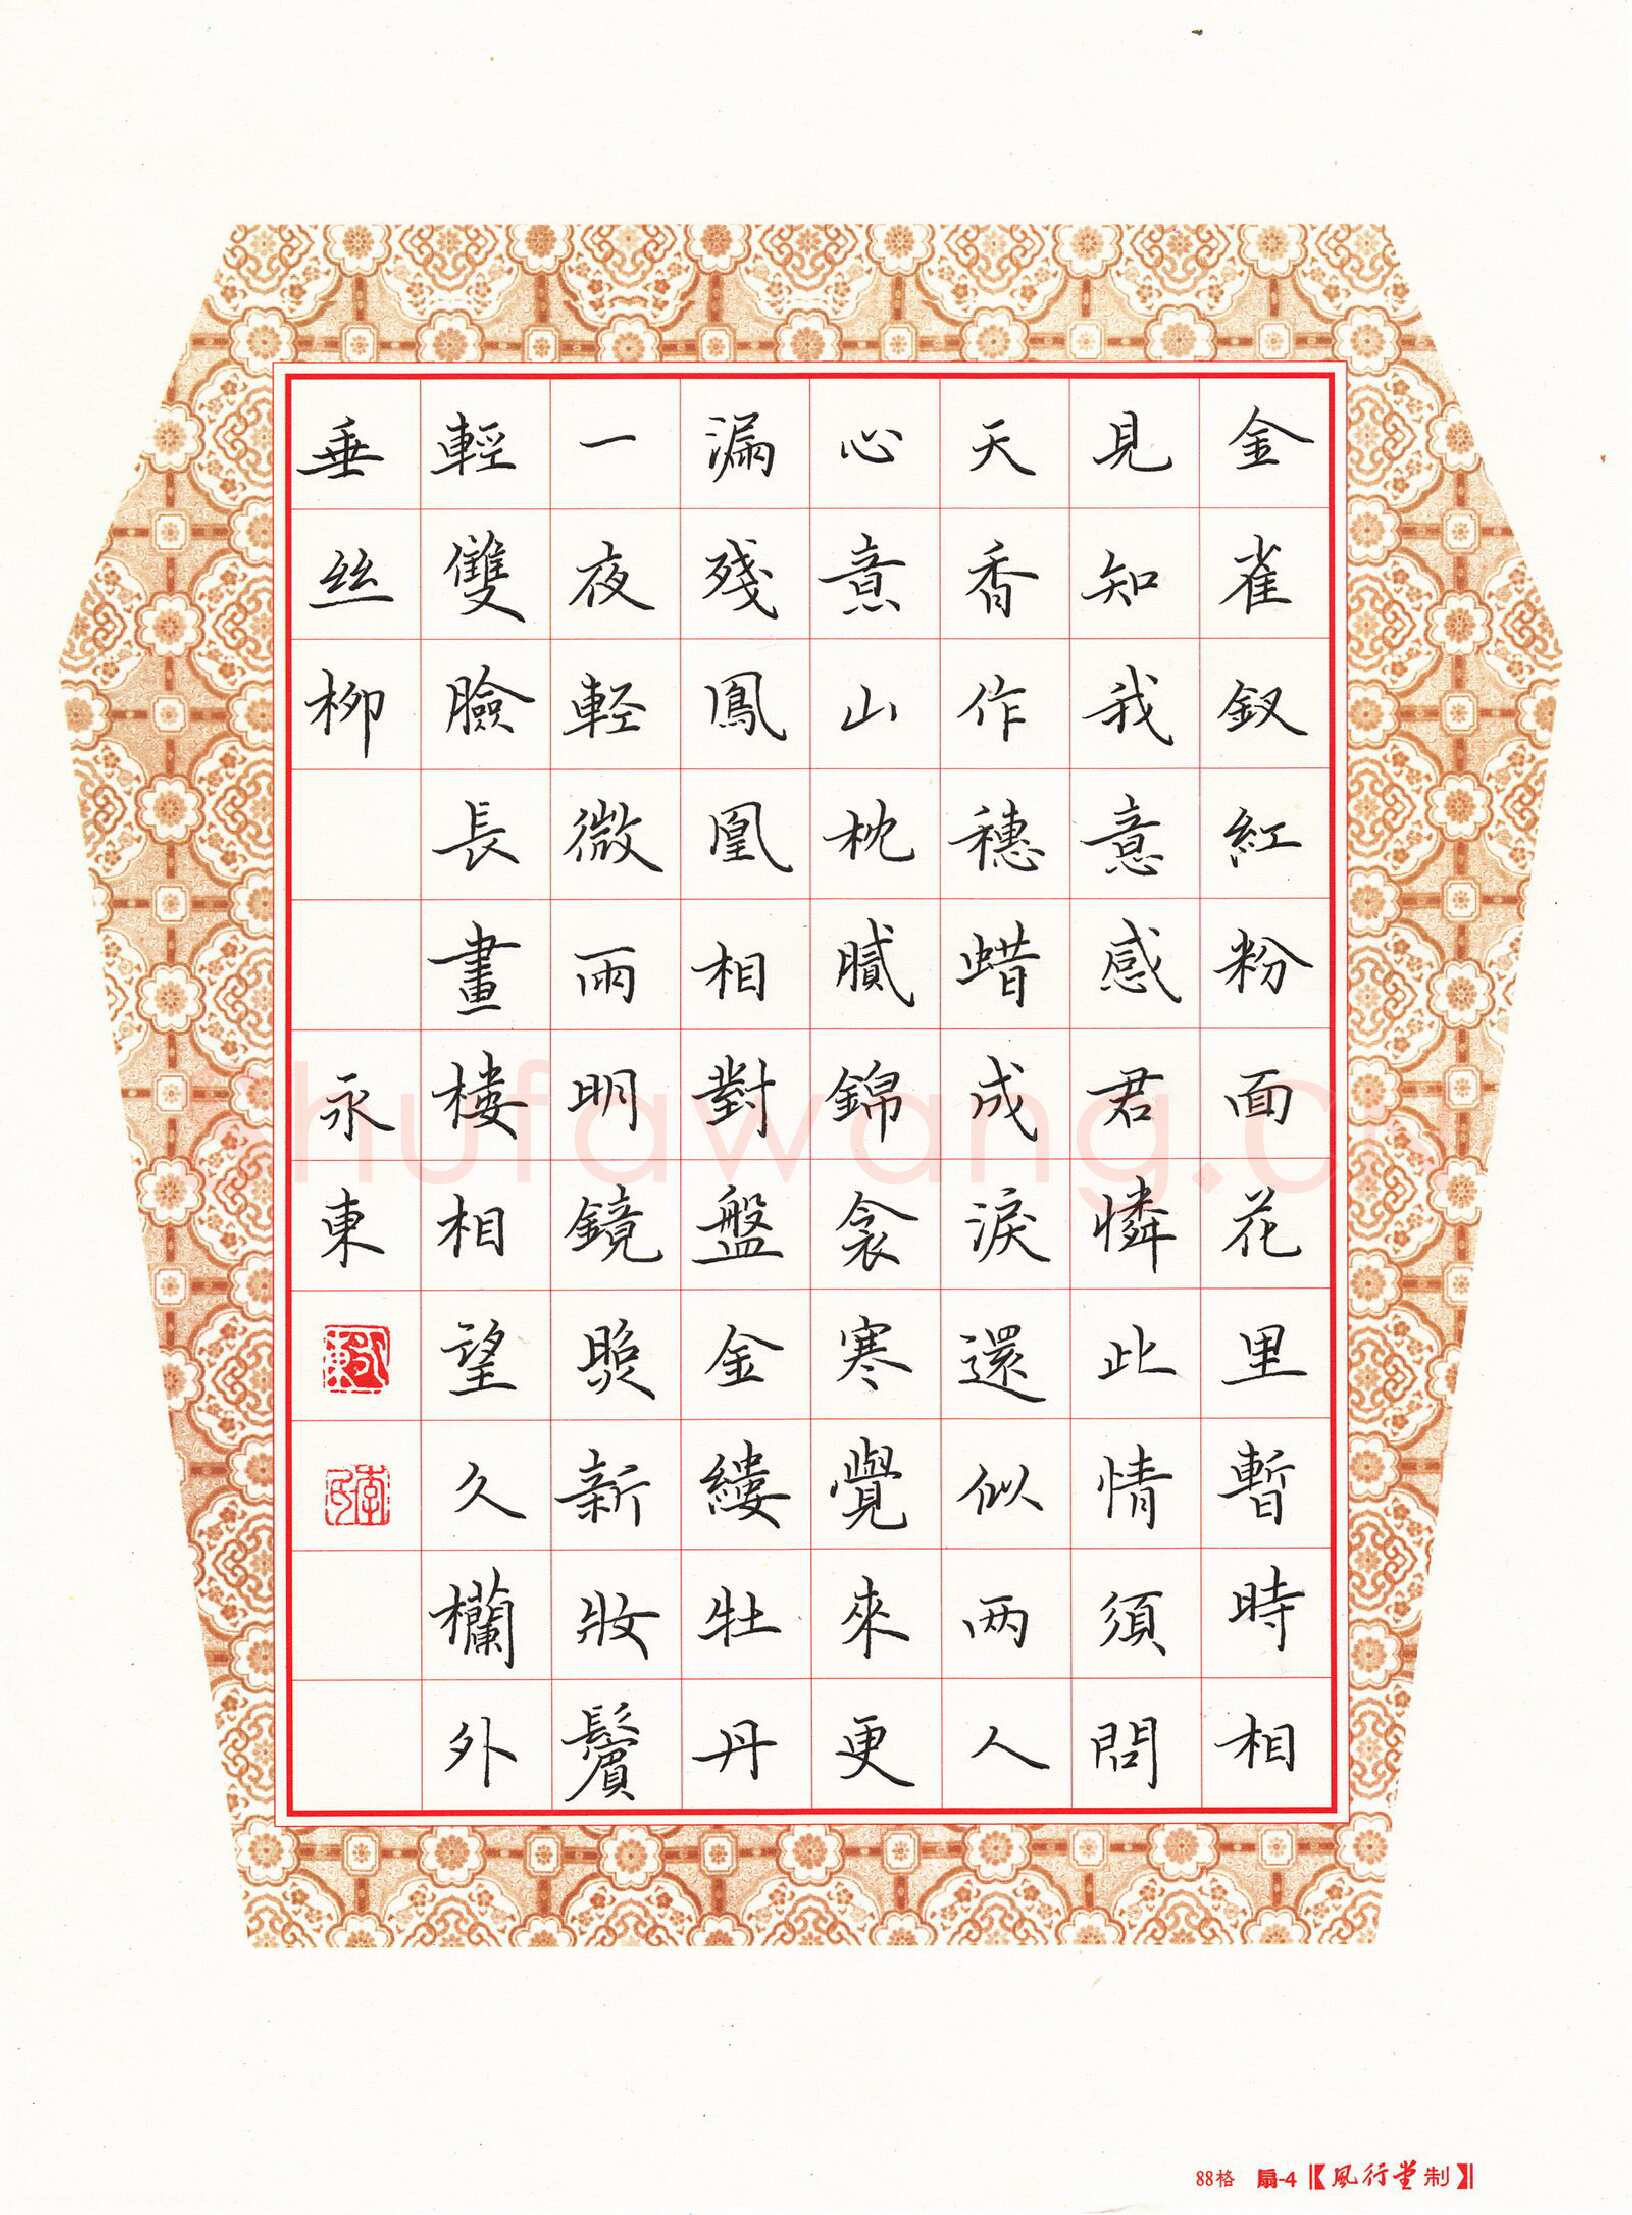 金雀釵紅粉面花里暫時相
見知我意感君憐此情須問
天香作穗蜡成淚還似两人
心意山枕膩錦衾寒覺來更
漏殘鳳凰相對盤金縷牡丹
一夜輕微雨明鏡照新妝鬢
輕雙臉長畫楼相望久欄外
垂丝柳
永東
shufawang.cn
88格 扇-4【風行堂制】